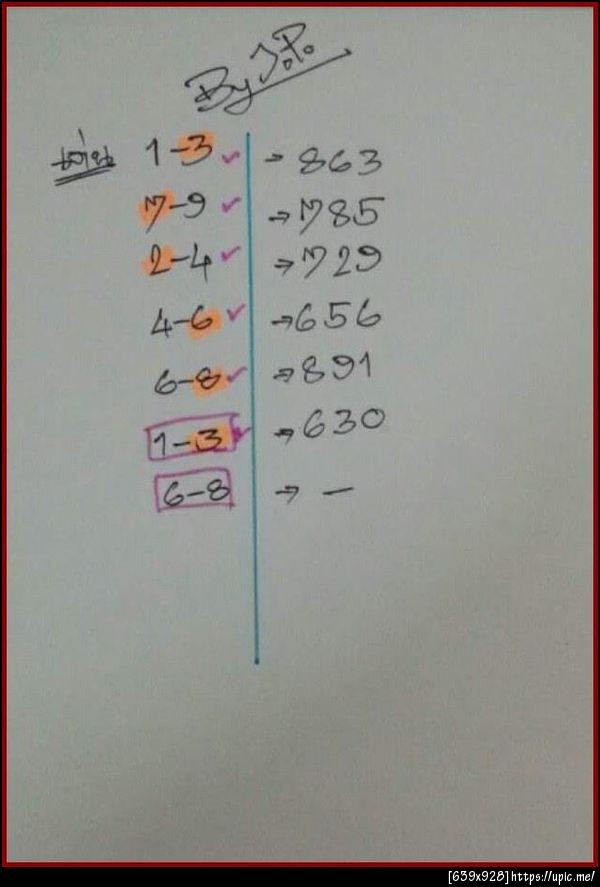 By J.P.
เด่น 1-3 ✓ → 863
7-9 ✓ → 785
2-4 ✓ → 729
4-6 ✓ → 656
6-8 ✓ → 891
1-3 ✓ → 630
6-8 → —
[639x928]https://upic.me/